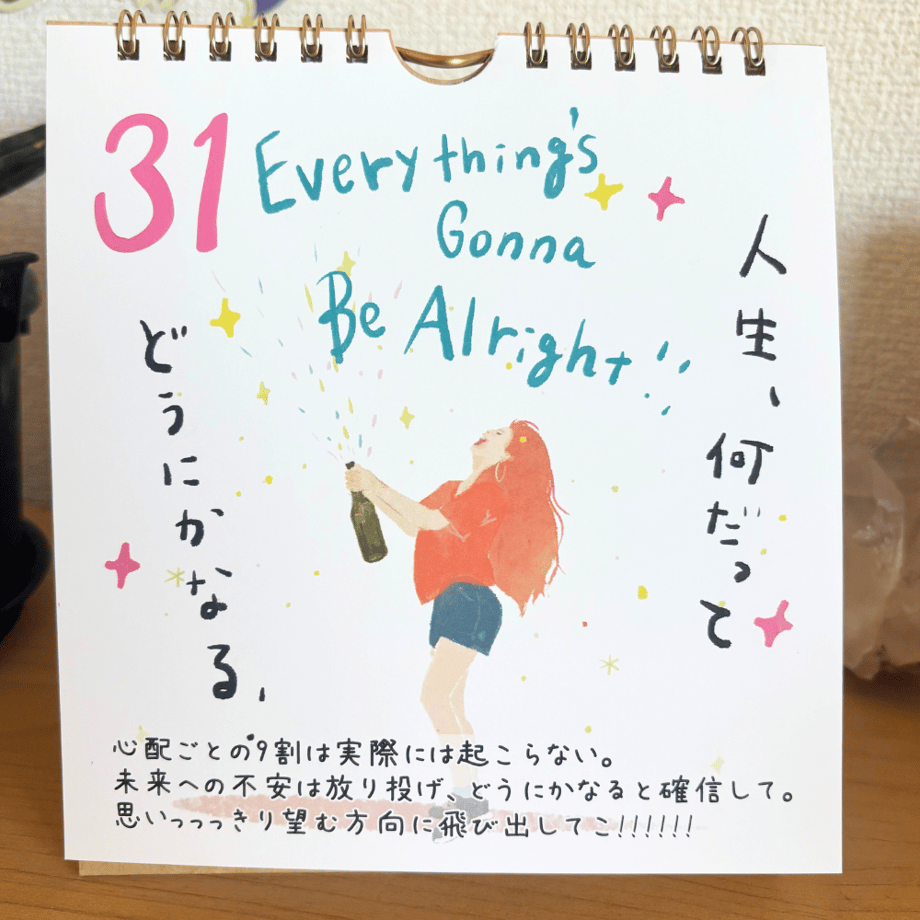 31
Everything's
Gonna
Be Alright!!
人生、何だって
どうにかなる、
心配ごとの9割は実際には起こらない。
未来への不安は放り投げ、どうにかなると確信して。
思いっっっきり望む方向に飛び出してこ!!!!!!